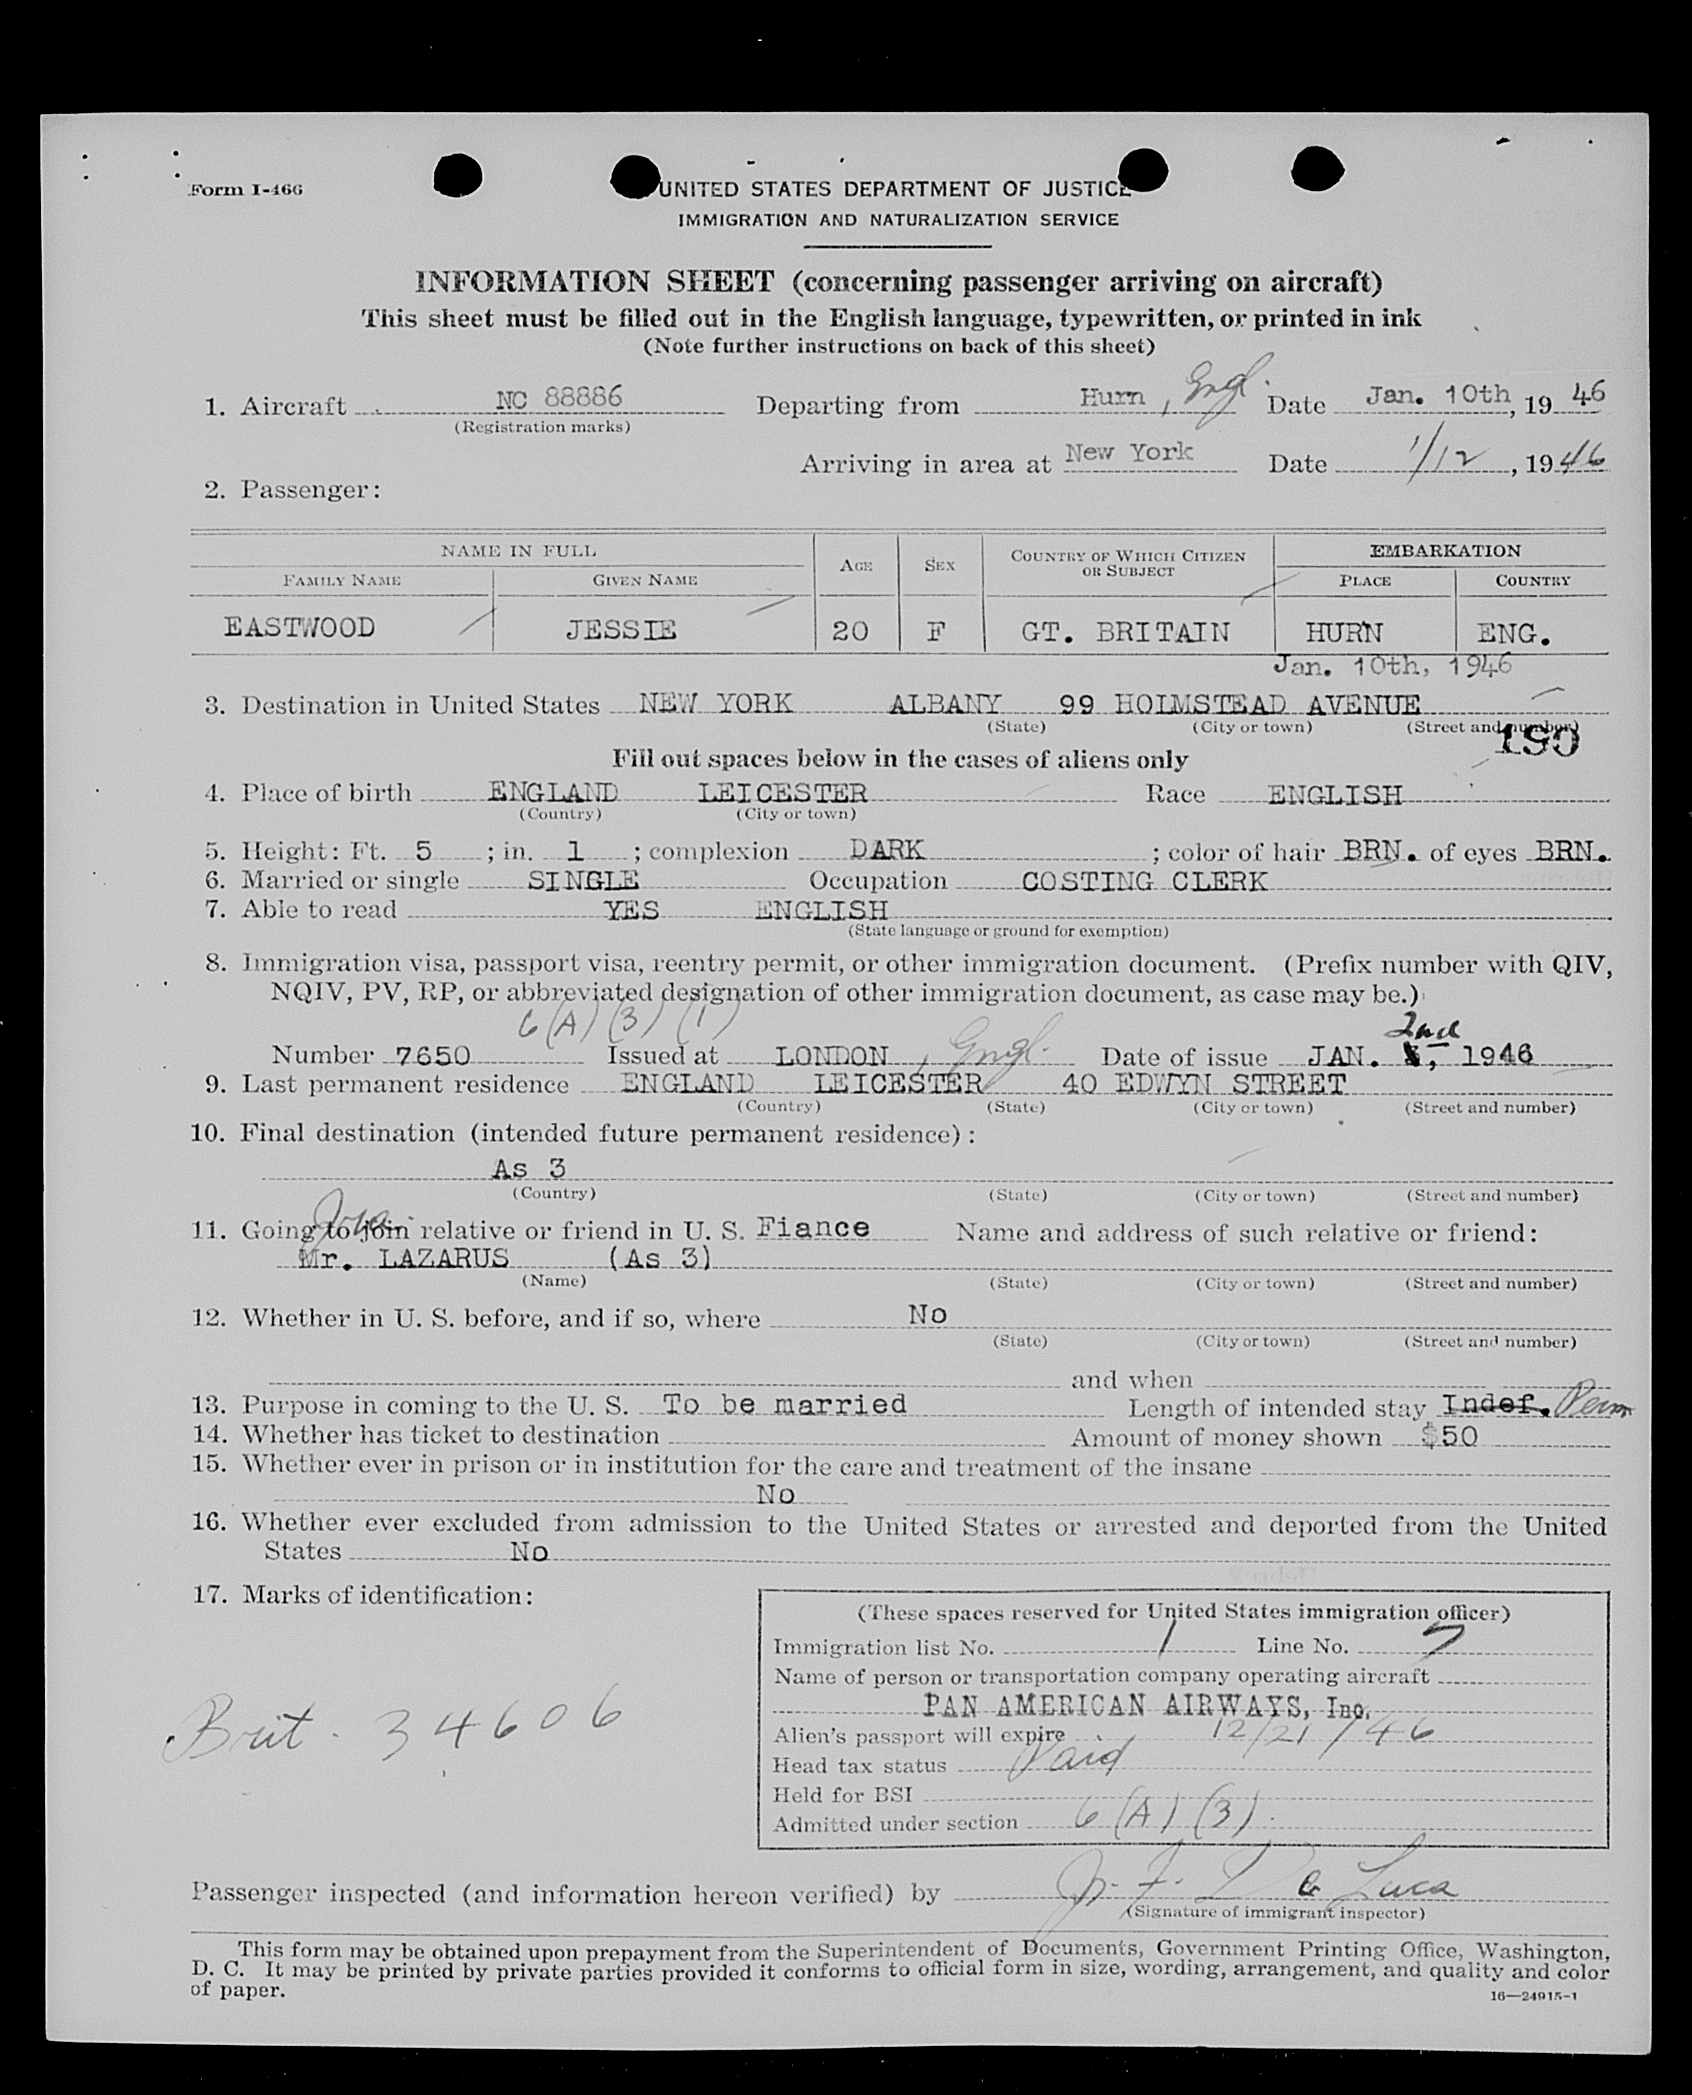 Form I-466
UNITED STATES DEPARTMENT OF JUSTICE
IMMIGRATION AND NATURALIZATION SERVICE
INFORMATION SHEET (concerning passenger arriving on aircraft)
This sheet must be filled out in the English language, typewritten, or printed in ink
(Note further instructions on back of this sheet)
1. Aircraft NC 88886 Departing from Hurn, Engl. Date Jan. 10th, 19 46
(Registration marks)
Arriving in area at New York Date 1/12, 19 46
2. Passenger:
NAME IN FULL AGE SEX COUNTRY OF WHICH CITIZEN OR SUBJECT EMBARKATION
FAMILY NAME GIVEN NAME PLACE COUNTRY
EASTWOOD JESSIE 20 F GT. BRITAIN HURN ENG.
Jan. 10th, 1946
3. Destination in United States NEW YORK ALBANY 99 HOLMSTEAD AVENUE
(State) (City or town) (Street and number)
190
Fill out spaces below in the cases of aliens only
4. Place of birth ENGLAND LEICESTER Race ENGLISH
(Country) (City or town)
5. Height: Ft. 5 ; in. 1 ; complexion DARK ; color of hair BRN. of eyes BRN.
6. Married or single SINGLE Occupation COSTING CLERK
7. Able to read YES ENGLISH
(State language or ground for exemption)
8. Immigration visa, passport visa, reentry permit, or other immigration document. (Prefix number with QIV,
NQIV, PV, RP, or abbreviated designation of other immigration document, as case may be.)
6(A)(3)(1) 2nd
Number 7650 Issued at LONDON, Engl. Date of issue JAN. , 1946
9. Last permanent residence ENGLAND LEICESTER 40 EDWYN STREET
(Country) (State) (City or town) (Street and number)
10. Final destination (intended future permanent residence):
As 3
(Country) (State) (City or town) (Street and number)
11. Going to join relative or friend in U. S. Fiance Name and address of such relative or friend:
Mr. LAZARUS (As 3)
(Name) (State) (City or town) (Street and number)
12. Whether in U. S. before, and if so, where No
(State) (City or town) (Street and number)
and when
13. Purpose in coming to the U. S. To be married Length of intended stay Indef. Perm
14. Whether has ticket to destination Amount of money shown $50
15. Whether ever in prison or in institution for the care and treatment of the insane
No
16. Whether ever excluded from admission to the United States or arrested and deported from the United
States No
17. Marks of identification:
Brit. 34606
(These spaces reserved for United States immigration officer)
Immigration list No. 1 Line No. 7
Name of person or transportation company operating aircraft
PAN AMERICAN AIRWAYS, Inc.
Alien's passport will expire 12/21/46
Head tax status Paid
Held for BSI
Admitted under section 6(A)(3).
Passenger inspected (and information hereon verified) by J. F. De Luca
(Signature of immigrant inspector)
This form may be obtained upon prepayment from the Superintendent of Documents, Government Printing Office, Washington,
D. C. It may be printed by private parties provided it conforms to official form in size, wording, arrangement, and quality and color
of paper.
16—24915-1